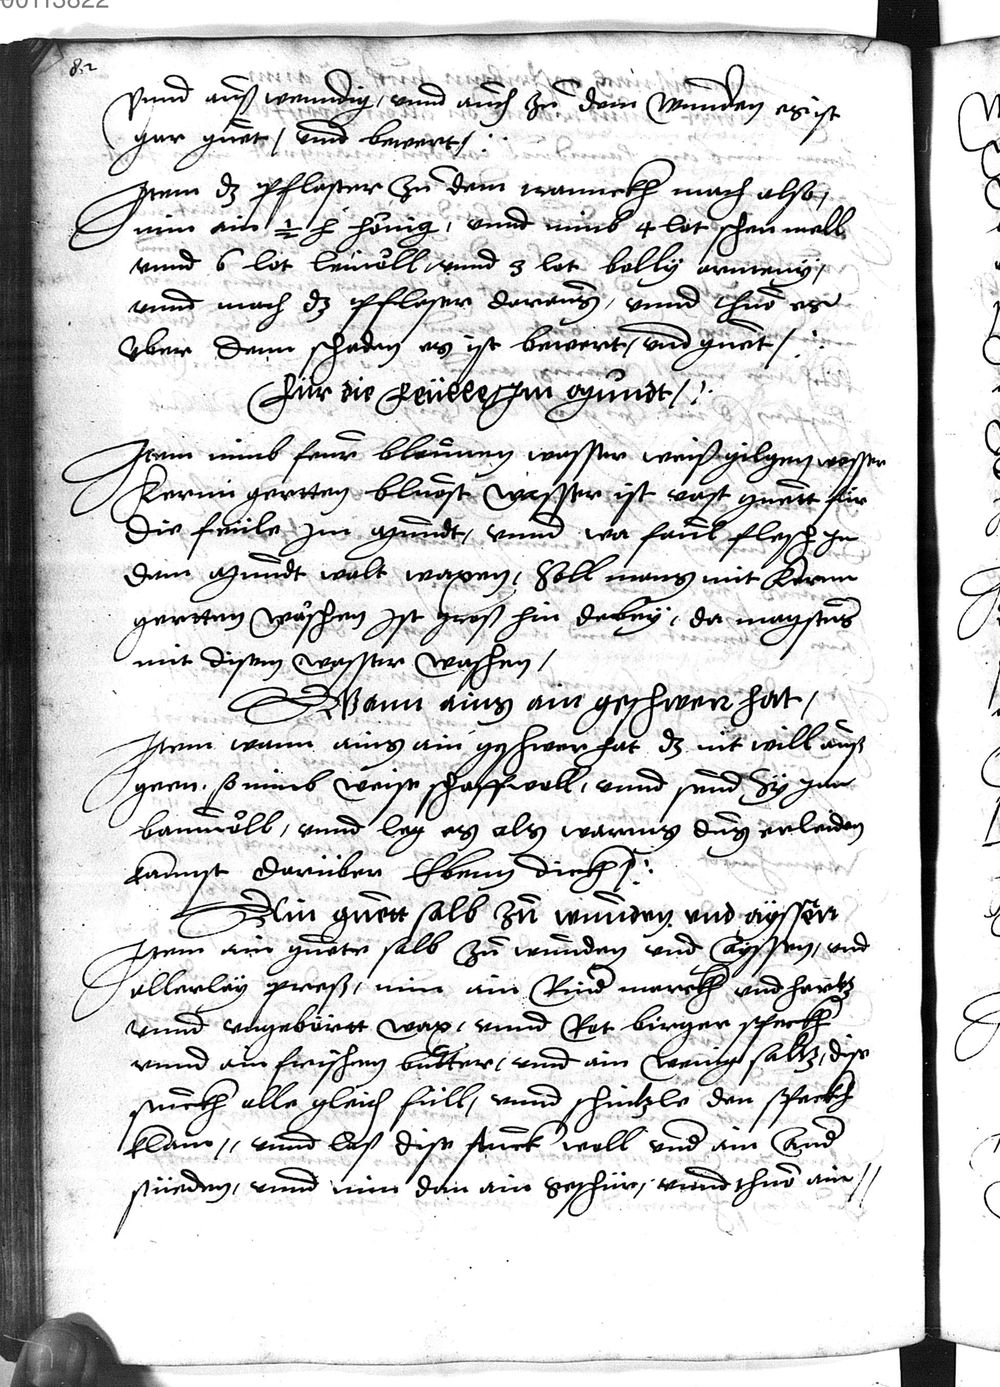 00113822
82
vnnd auß wenndig, vnnd auch zů dem wunden es ist
gar guet, vnnd bewert /:
Item dz pflaster zů dem wannckh mach also,
nim ain ½ ℔ hönig, vnnd nimb 4 lot schen mell
vnnd 6 lot leinöll, vnnd 3 lot bolly armeny,
vnnd mach dz pflaser daraus, vnnd thuo es
vber denn schaden es ist bewert, vnd guet /:
Für die feülle Im Mundt /:
Item nimb blaumen wasser weiß gilgen wasser
Kerrin gertten bluost wasser ist vast guett für
die feüle Im Mundt, vnnd wa faul flesch In
dem Mundt wolt waxen, Soll mans mit Kernn
gertten wäschen Ist groß hin darbey, da magstus
mit disem wasser waschen,
Wann ains ain geschwer hat,
Item wann ains ain geschwer hat dz nit will auß
geen, so nimb weise schaffwoll, vnnd seud sy Inn
bamöll, vnnd leg es als warms dus erleiden
kannst darüber Ebenn dickh /:
Ain guett salb zů wunden vnd ayssen
Item ain guete salb zů wunden vnd Ayssen, vnd
allerlay preß, nim ain Rind marckh vnd hartz
vnnd wax, vnnd Rot birger speckh
vnnd ain frischen butter, vnd ain wenig saltz, dise
stuckh alle gleich füll, vnnd schnitzle den speckh
klain, vnnd laß dise stuck woll vnd ain Annd
sieden, vnnd nim dan ain geschir, vnnd thuo ain //